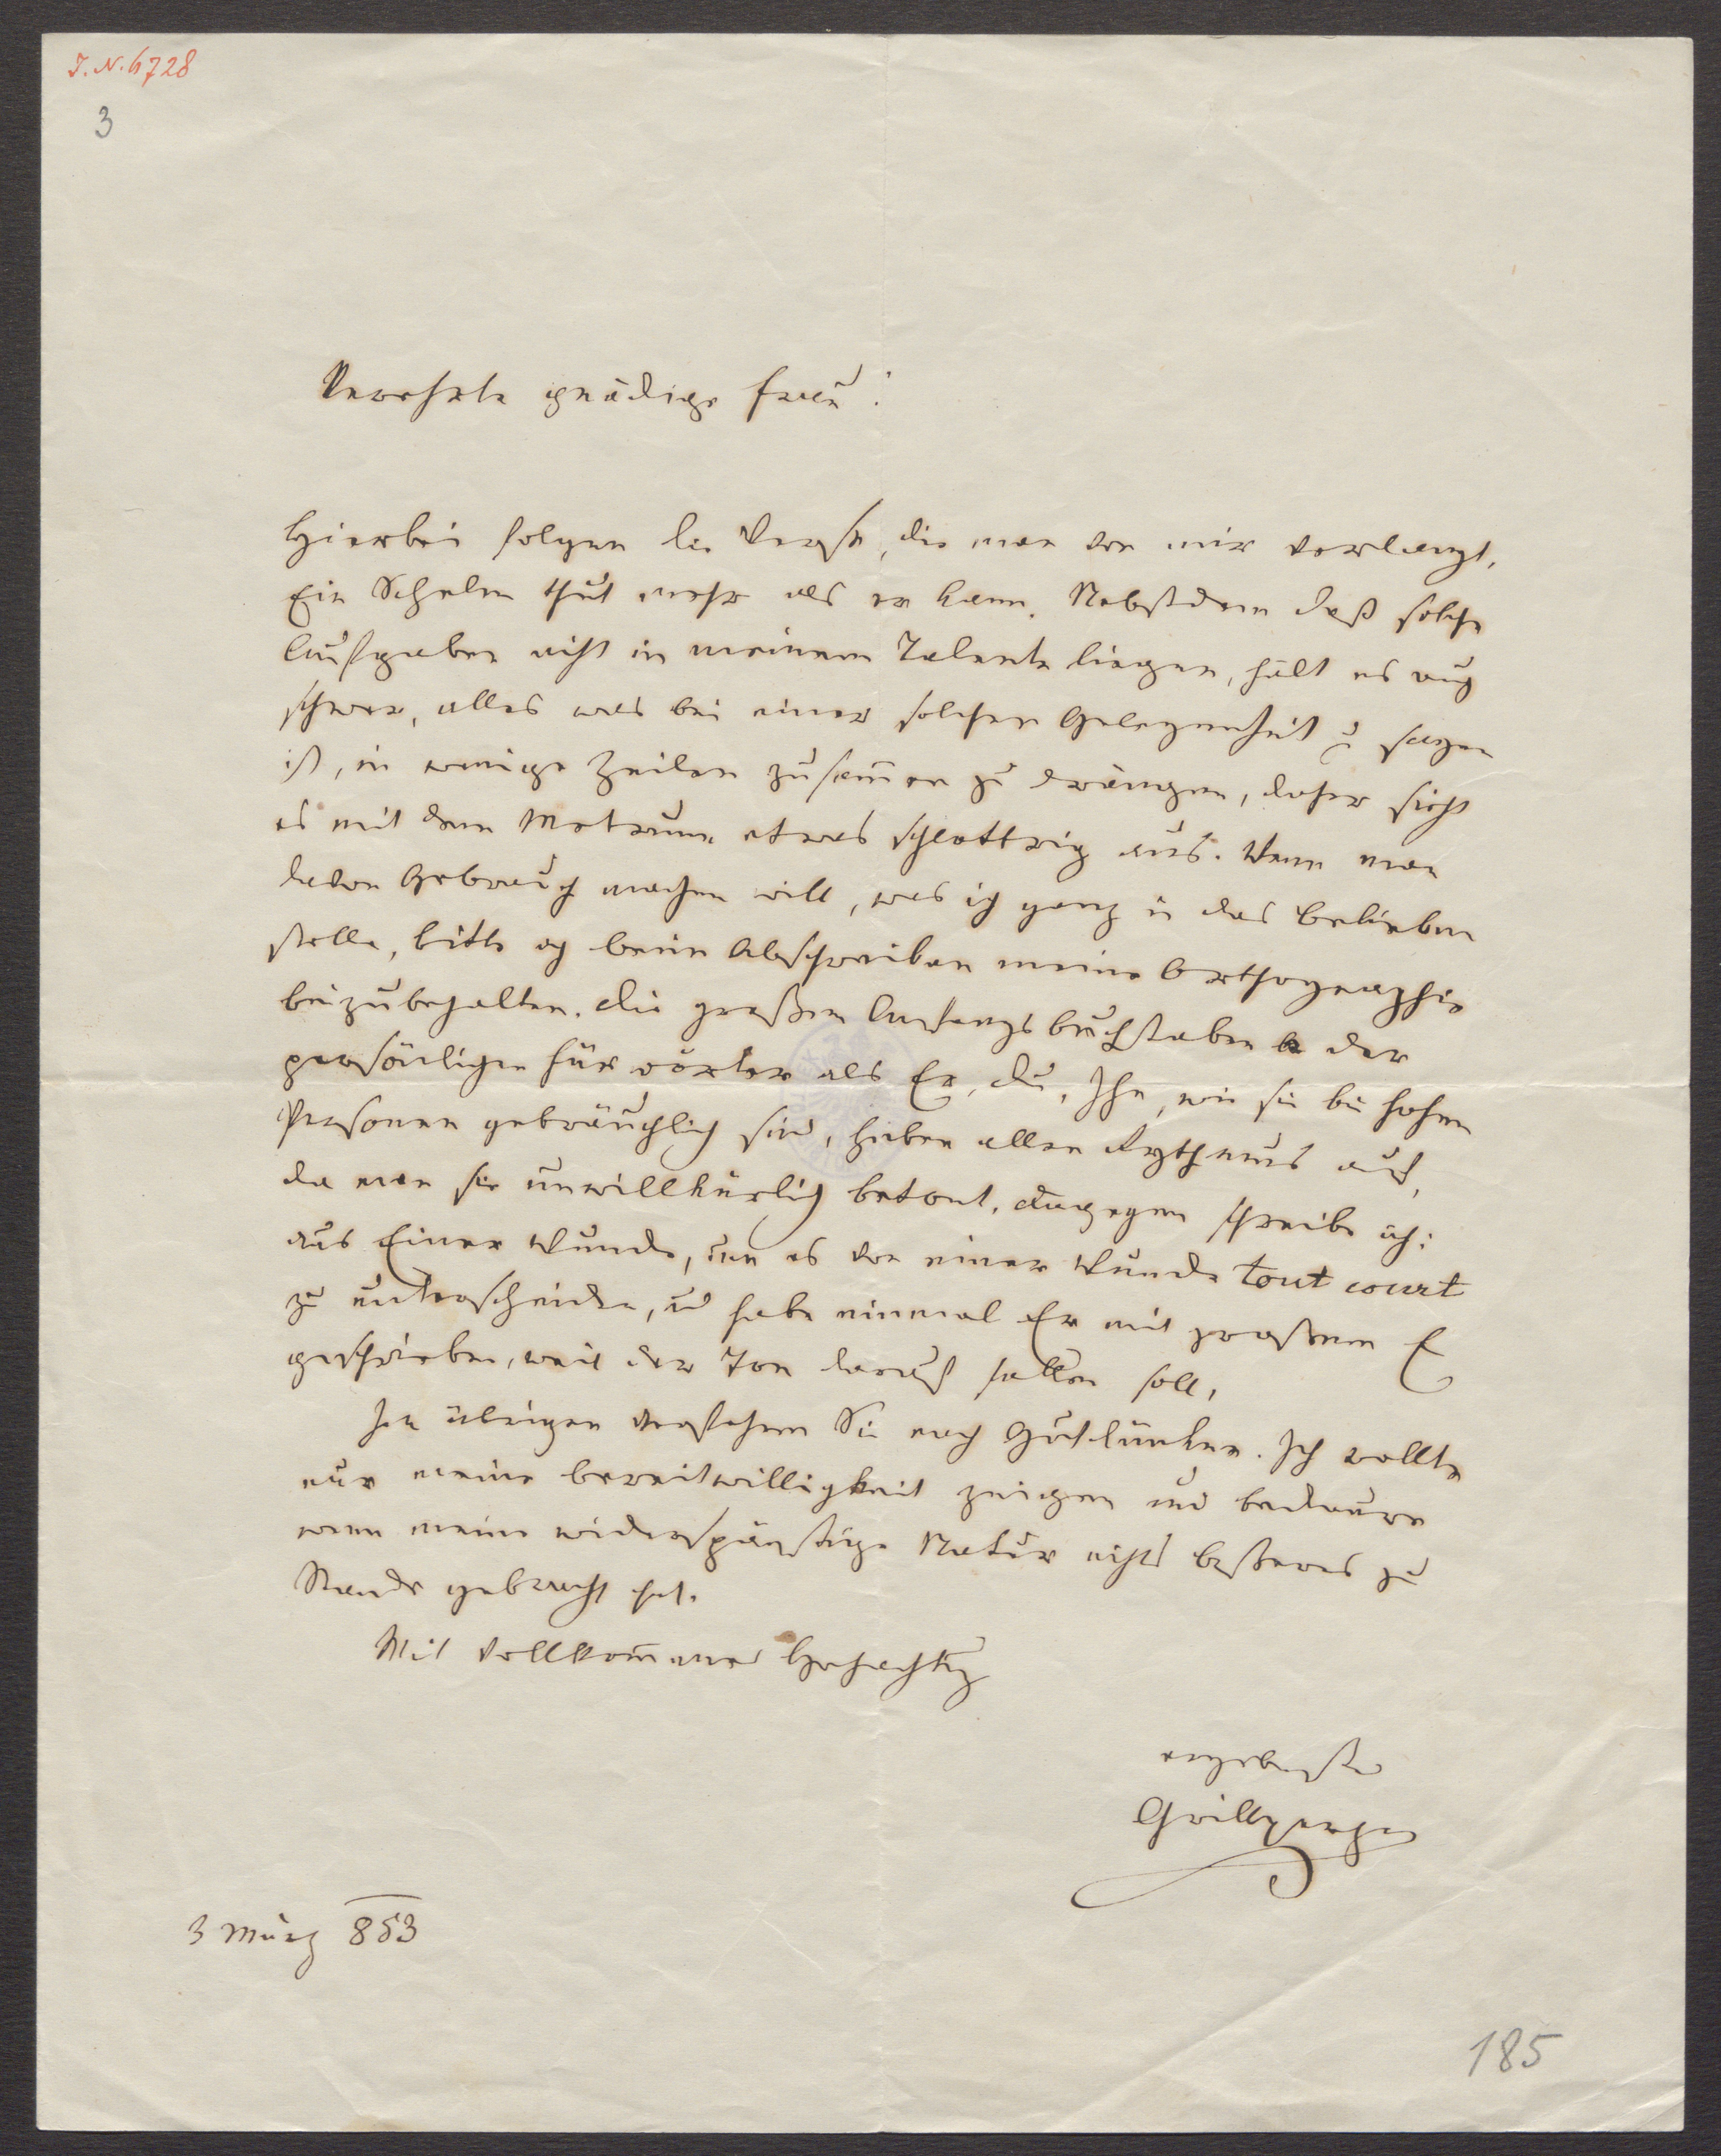 I.N. 6728
3
Verehrte gnädige Frau!
Hierbei folgen die Verse, die man von mir verlangt.
Ein Schelm thut mehr als er kann. Nebstdem daß solche
Aufgaben nicht in meinem Talente liegen, hält es auch
schwer, alles was bei einer solchen Gelegenheit zu sagen
ist, in wenige Zeilen zusam̄en zu drängen, daher sieht
es mit dem Metrum etwas schlottrig aus. Wenn man
davon Gebrauch machen will, was ich ganz in das Belieben
stelle, bitte ich beim Abschreiben meine Orthographie
beizubehalten. Die großen Anfangsbuchstaben der
persönlichen Fürwörter als Er, Du, Ihn, wie sie bei hohen
Personen gebräuchlich sind, heben allen Rythmus auf,
da man sie unwillkürlich betont. Dagegen schreibe ich:
aus Einer Wunde, um es von einer Wunde tout court
zu unterscheiden, und habe einmal Er mit großem E
geschrieben, weil der Ton darauf fallen soll.
Im übrigen verfahren Sie nach Gutdünken. Ich wollte
nur meine Bereitwilligkeit zeigen und bedaure
wenn meine widerspänstige Natur nichts beßeres zu
Stande gebracht hat.
Mit vollkom̄ener Hochachtung
ergebenster
Grillparzer
3 März 853
185